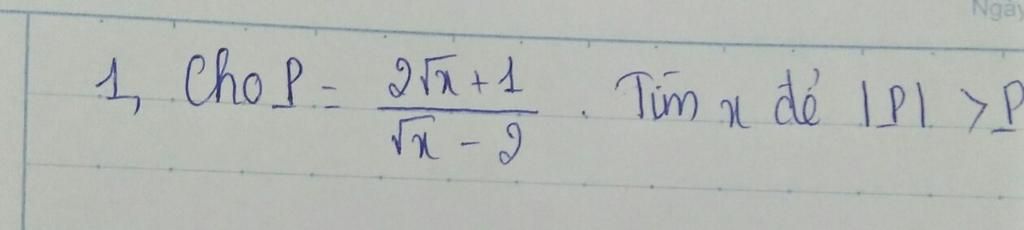 Ngày
1, Cho P = \frac{2\sqrt{x}+1}{\sqrt{x}-2} . Tìm x để |P| > P